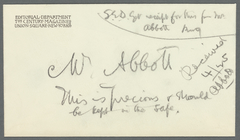 EDITORIAL DEPARTMENT
THE CENTURY MAGAZINE
UNION SQUARE NEW YORK
get receipt for this for Mr.
Abbott Aug
Received
Abbott
Mr Abbott
This is Precious & should
be kept in the Safe.